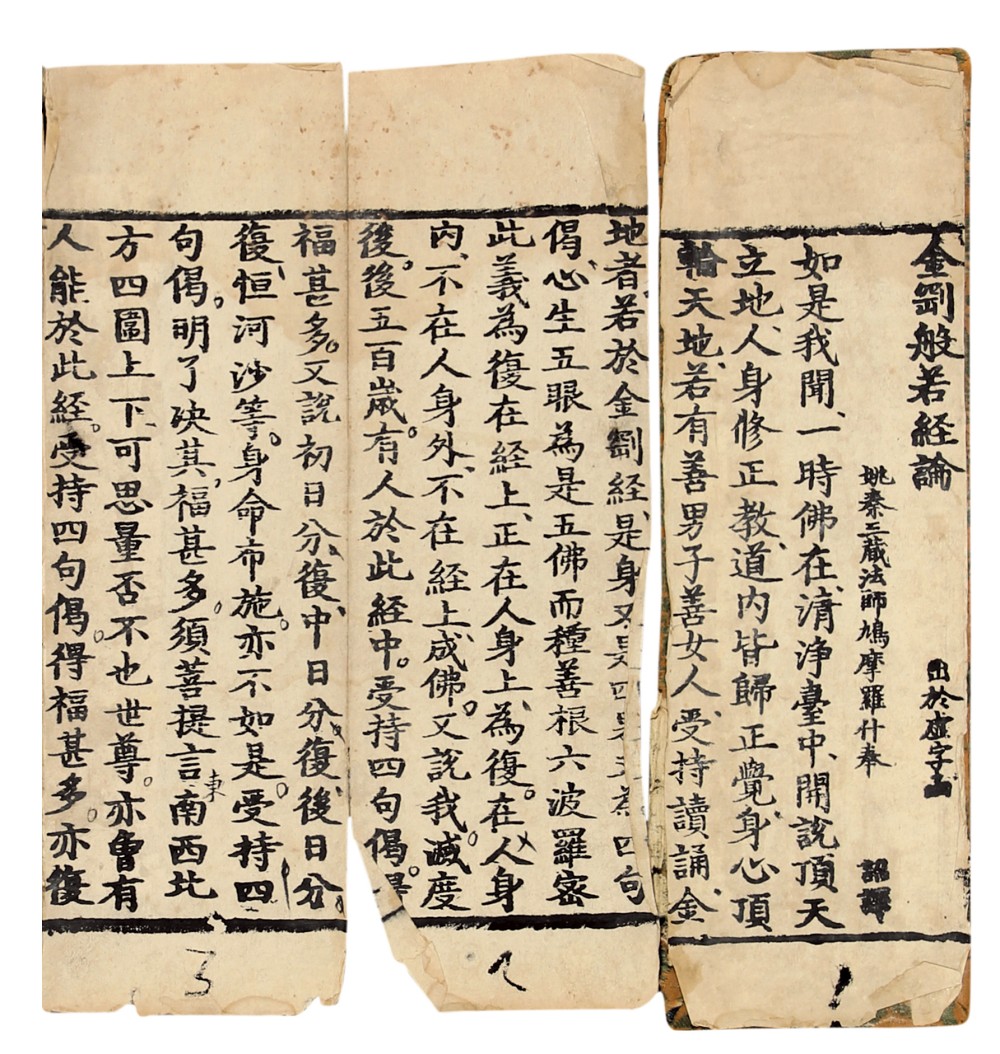 金剛般若経論
出於虛字
姚秦三蔵法師鳩摩羅什奉
詔譯
如是我聞一時佛在清浄臺中開說頂天
立地人身修正教道内皆歸正覺身心頂
輪天地若有善男子善女人受持讀誦金
地者若於金剛經是身又是四句
偈心生五眼為是五佛而種善根六波羅密
此義為復在経上正在人身上為復在人身
内不在人身外不在経上成佛又說我滅度
後後五百歲有人於此経中受持四句偈
福甚多又說初日分復中日分復後日分
復恒河沙等身命布施亦不如是受持四
句偈明了决其福甚多須菩提言東南西北
方四圍上下可思量否不也世尊亦曾有
人能於此経受持四句偈得福甚多亦復